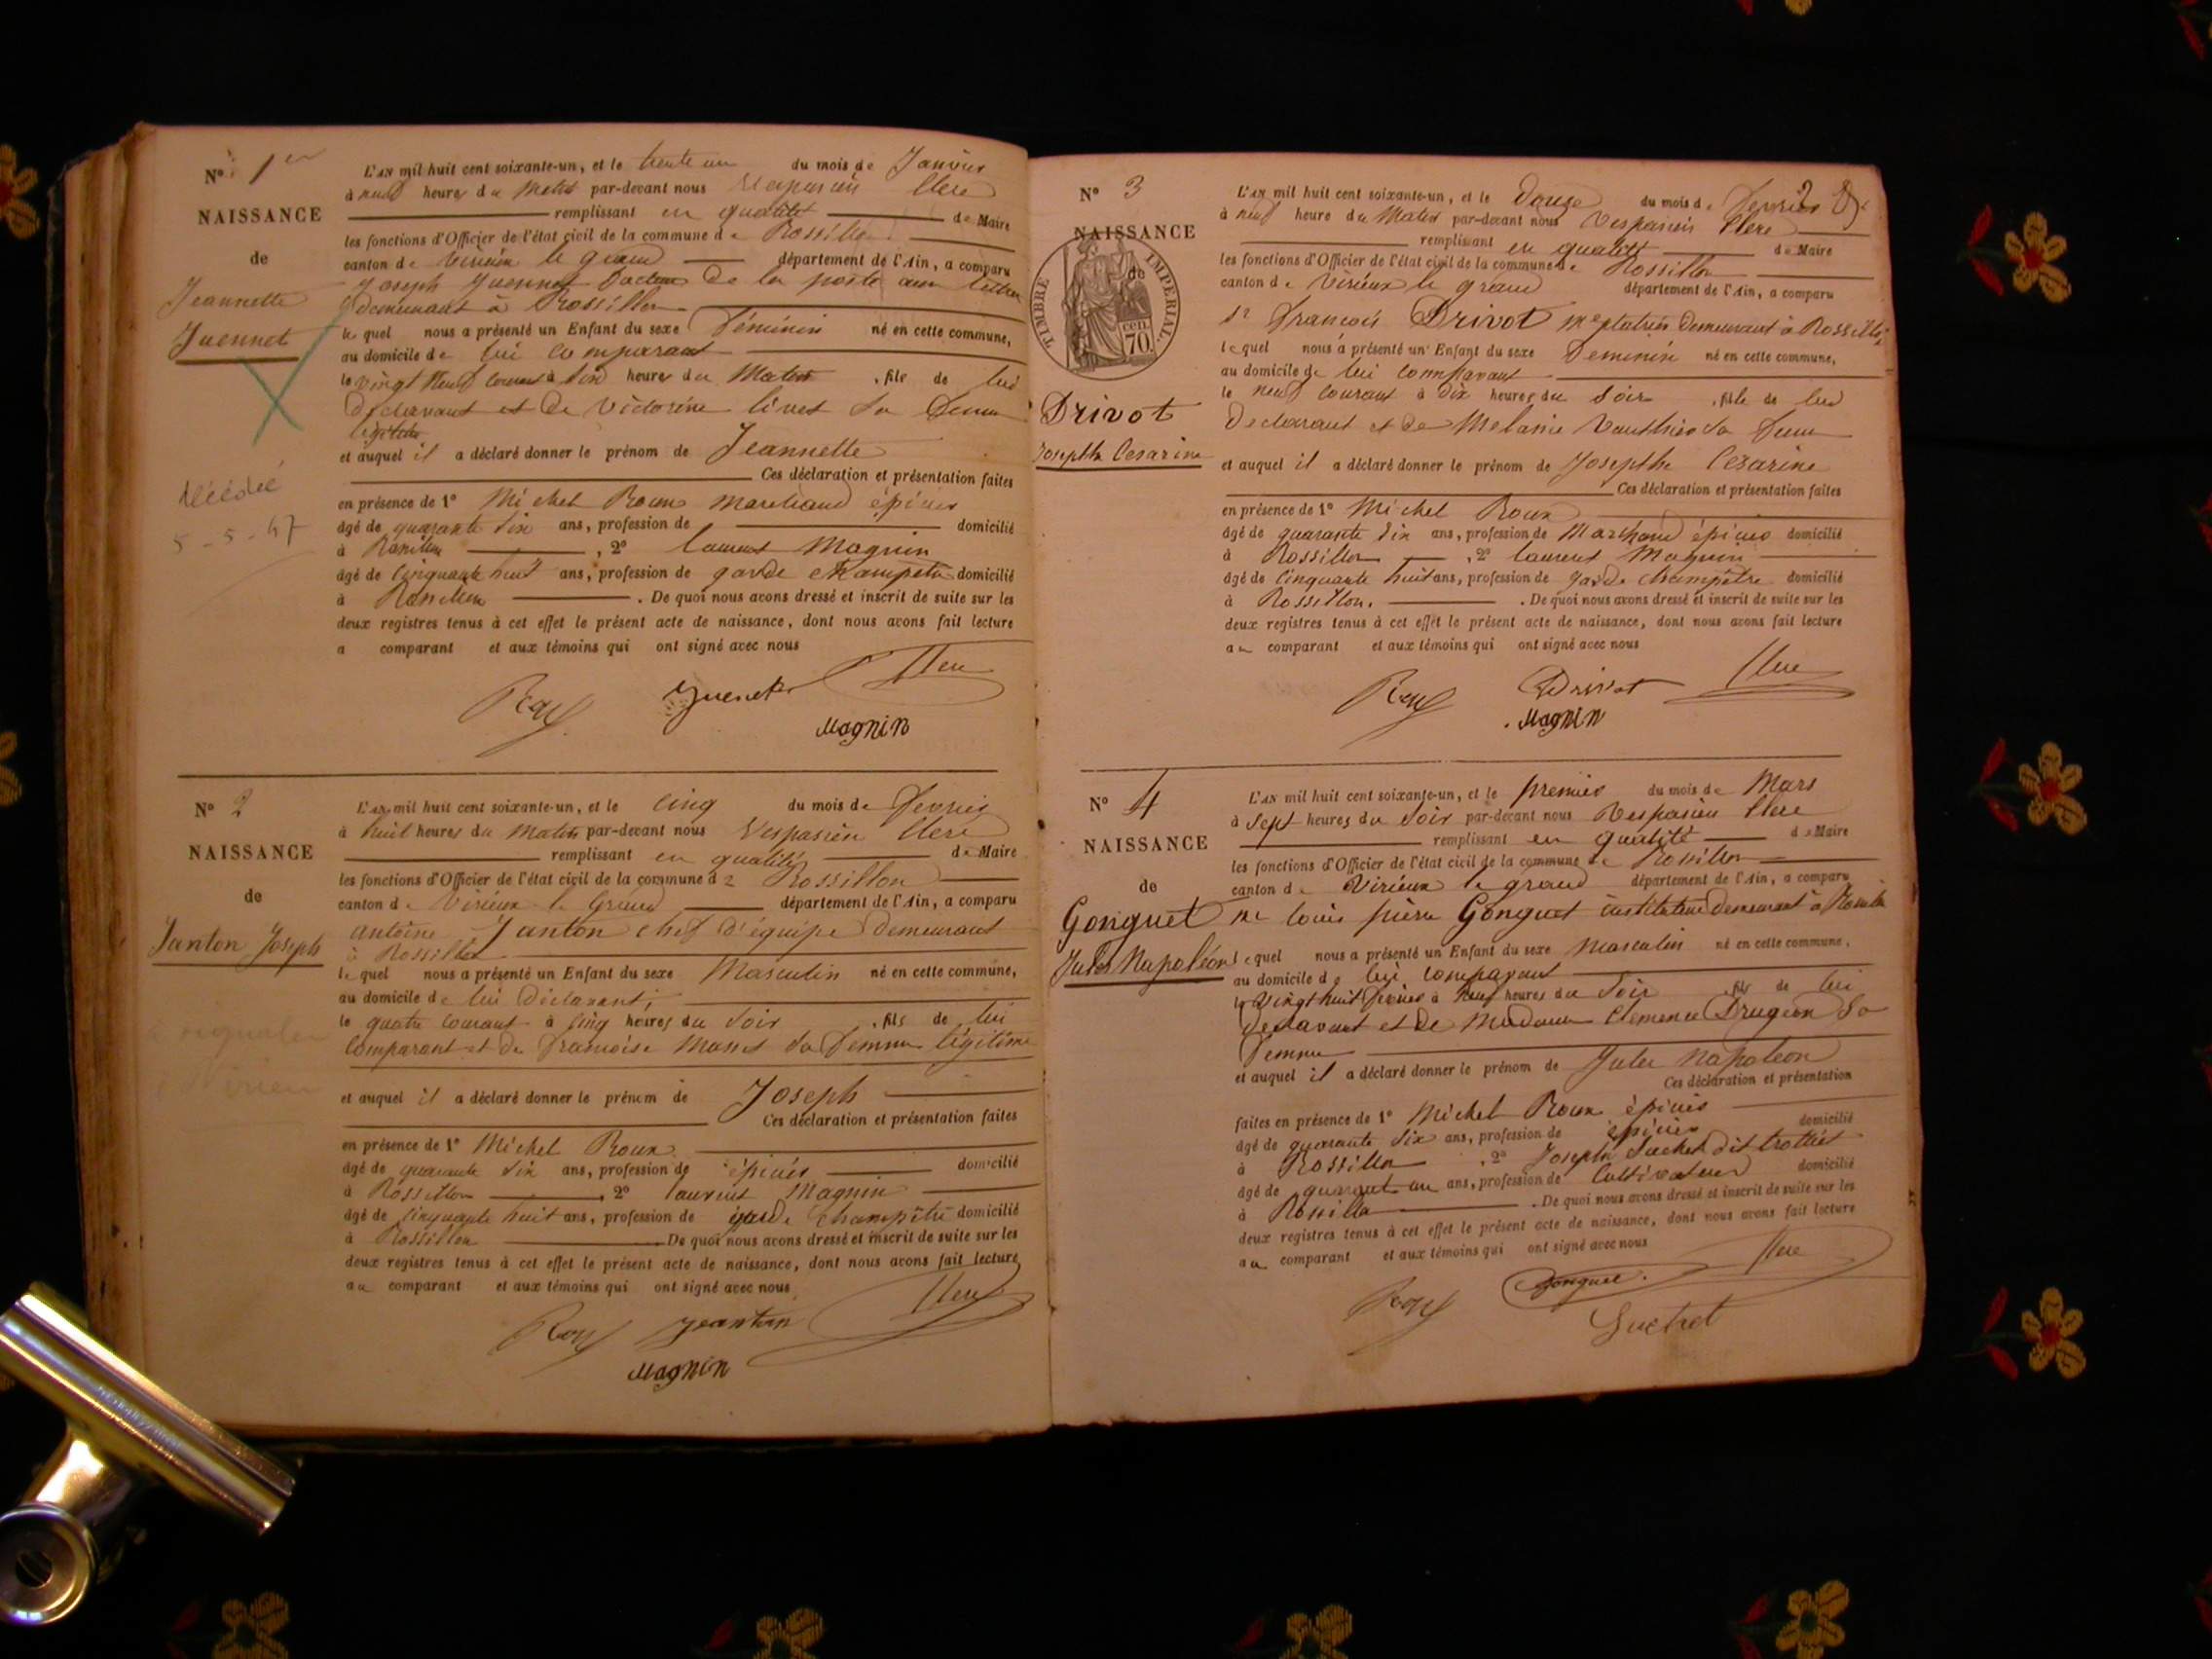 N° 1er
NAISSANCE
de
Jeannette
Juennet
décédée
5-5-47
L'AN mil huit cent soixante-un, et le trente un du mois de Janvier
à neuf heures du Matin par-devant nous Vespasien Clerc
remplissant en qualité de Maire
les fonctions d'Officier de l'état civil de la commune de Rossillon
canton de Virieux le grand département de l'Ain, a comparu
Joseph Juennet facteur De la poste aux lettres
demeurant à Rossillon
lequel nous a présenté un Enfant du sexe féminin né en cette commune,
au domicile de lui comparant
le vingt neuf courant à six heures du Matin , fils de lui
Déclarant et De Victorine livet sa femme
légitime
et auquel il a déclaré donner le prénom de Jeannette
Ces déclaration et présentation faites
en présence de 1° Michel Roux marchand épicier
âgé de quarante six ans, profession de domicilié
à Rossillon , 2° laurent Magnin
âgé de cinquante huit ans, profession de garde champêtre domicilié
à Rossillon . De quoi nous avons dressé et inscrit de suite sur les
deux registres tenus à cet effet le présent acte de naissance, dont nous avons fait lecture
a comparant et aux témoins qui ont signé avec nous
Juenet Clerc
Magnin
N° 2
NAISSANCE
de
Janton Joseph
L'AN mil huit cent soixante-un, et le cinq du mois de fevrier
à huit heures du Matin par-devant nous Vespasien Clerc
remplissant en qualité de Maire
les fonctions d'Officier de l'état civil de la commune de Rossillon
canton de Virieux le Grand département de l'Ain, a comparu
antoine Janton chef d'équipe Demeurant
à Rossillon
lequel nous a présenté un Enfant du sexe Masculin né en cette commune,
au domicile de lui déclarant,
le quatre courant à cinq heures du soir , fils de lui
comparant et de francoise sa femme légitime
et auquel il a déclaré donner le prénom de Joseph
Ces déclaration et présentation faites
en présence de 1° Michel Roux
âgé de quarante six ans, profession de épicier domicilié
à Rossillon , 2° laurent Magnin
âgé de cinquante huit ans, profession de garde champêtre domicilié
à Rossillon De quoi nous avons dressé et inscrit de suite sur les
deux registres tenus à cet effet le présent acte de naissance, dont nous avons fait lecture
au comparant et aux témoins qui ont signé avec nous
Jeantin Clerc
Magnin
N° 3
NAISSANCE
de
TIMBRE IMPERIAL.
70 cen.
Drivot
Josephte Cesarine
L'AN mil huit cent soixante-un, et le douze du mois de fevrier
à neuf heure du Matin par-devant nous Vespasien Clerc
remplissant en qualité de Maire
les fonctions d'Officier de l'état civil de la commune de Rossillon
canton de Virieux le grand département de l'Ain, a comparu
sr francois Drivot demeurant à Rossillon
lequel nous a présenté un Enfant du sexe feminin né en cette commune,
au domicile de lui comparant
le neuf courant à dix heures du soir , fille de lui
Declarant et de Melanie Vauthier sa femme
et auquel il a déclaré donner le prénom de Josephte Cesarine
Ces déclaration et présentation faites
en présence de 1° Michel Roux
âgé de quarante six ans, profession de Marchand épicier domicilié
à Rossillon , 2° laurent Magnin
âgé de cinquante huit ans, profession de garde champêtre domicilié
à Rossillon. . De quoi nous avons dressé et inscrit de suite sur les
deux registres tenus à cet effet le présent acte de naissance, dont nous avons fait lecture
au comparant et aux témoins qui ont signé avec nous
Drivot Clerc
Magnin
N° 4
NAISSANCE
de
Gonguet
Jules Napoléon
L'AN mil huit cent soixante-un, et le premier du mois de Mars
à sept heures du soir par-devant nous Vespasien Clerc
remplissant en qualité de Maire
les fonctions d'Officier de l'état civil de la commune de Rossillon
canton de Virieux le grand département de l'Ain, a comparu
Mr louis pierre Gonguet instituteur demeurant à Rossillon
lequel nous a présenté un Enfant du sexe masculin né en cette commune,
au domicile de lui comparant
le vingt huit fevrier à heures du soir , fils de lui
declarant et de Madame Clemence Drugeon sa
femme
et auquel il a déclaré donner le prénom de Jules Napoleon
Ces déclaration et présentation
faites en présence de 1° Michel Roux épicier
âgé de quarante six ans, profession de épicier domicilié
à Rossillon , 2° Joseph Suchet dit trottet
âgé de quarante un ans, profession de Cultivateur domicilié
à Rossillon . De quoi nous avons dressé et inscrit de suite sur les
deux registres tenus à cet effet le présent acte de naissance, dont nous avons fait lecture
au comparant et aux témoins qui ont signé avec nous
Gonguet. Clerc
Suchet